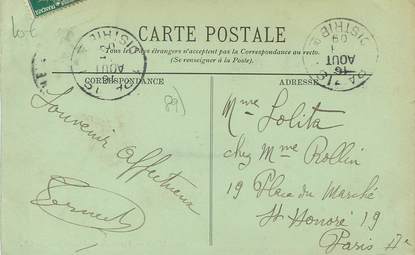 CARTE POSTALE
Tous les Pays étrangers n'acceptent pas la Correspondance au recto.
(Se renseigner à la Poste).
CORRESPONDANCE
ADRESSE
Souvenir affectueux
Mme Lolita
chez Mme Rollin
19 Place du Marché
St Honoré 19
Paris
16
AOUT
09
DISTRIB
16
AOUT